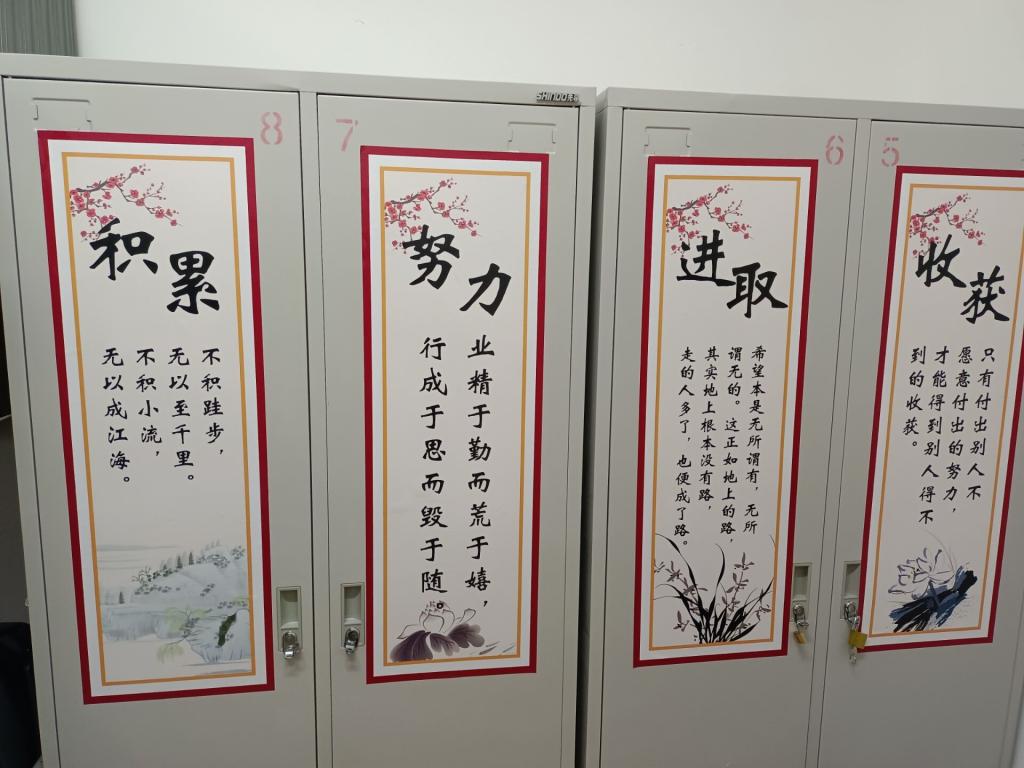 8
积累
不积跬步，
无以至千里。
不积小流，
无以成江海。
7
努力
业精于勤而荒于嬉，
行成于思而毁于随。
SHINDO
6
进取
希望本是无所谓有，无所
谓无的。这正如地上的路，
其实地上根本没有路，
走的人多了，也便成了路。
5
收获
只有付出别人不
愿意付出的努力，
才能得到别人得不
到的收获。